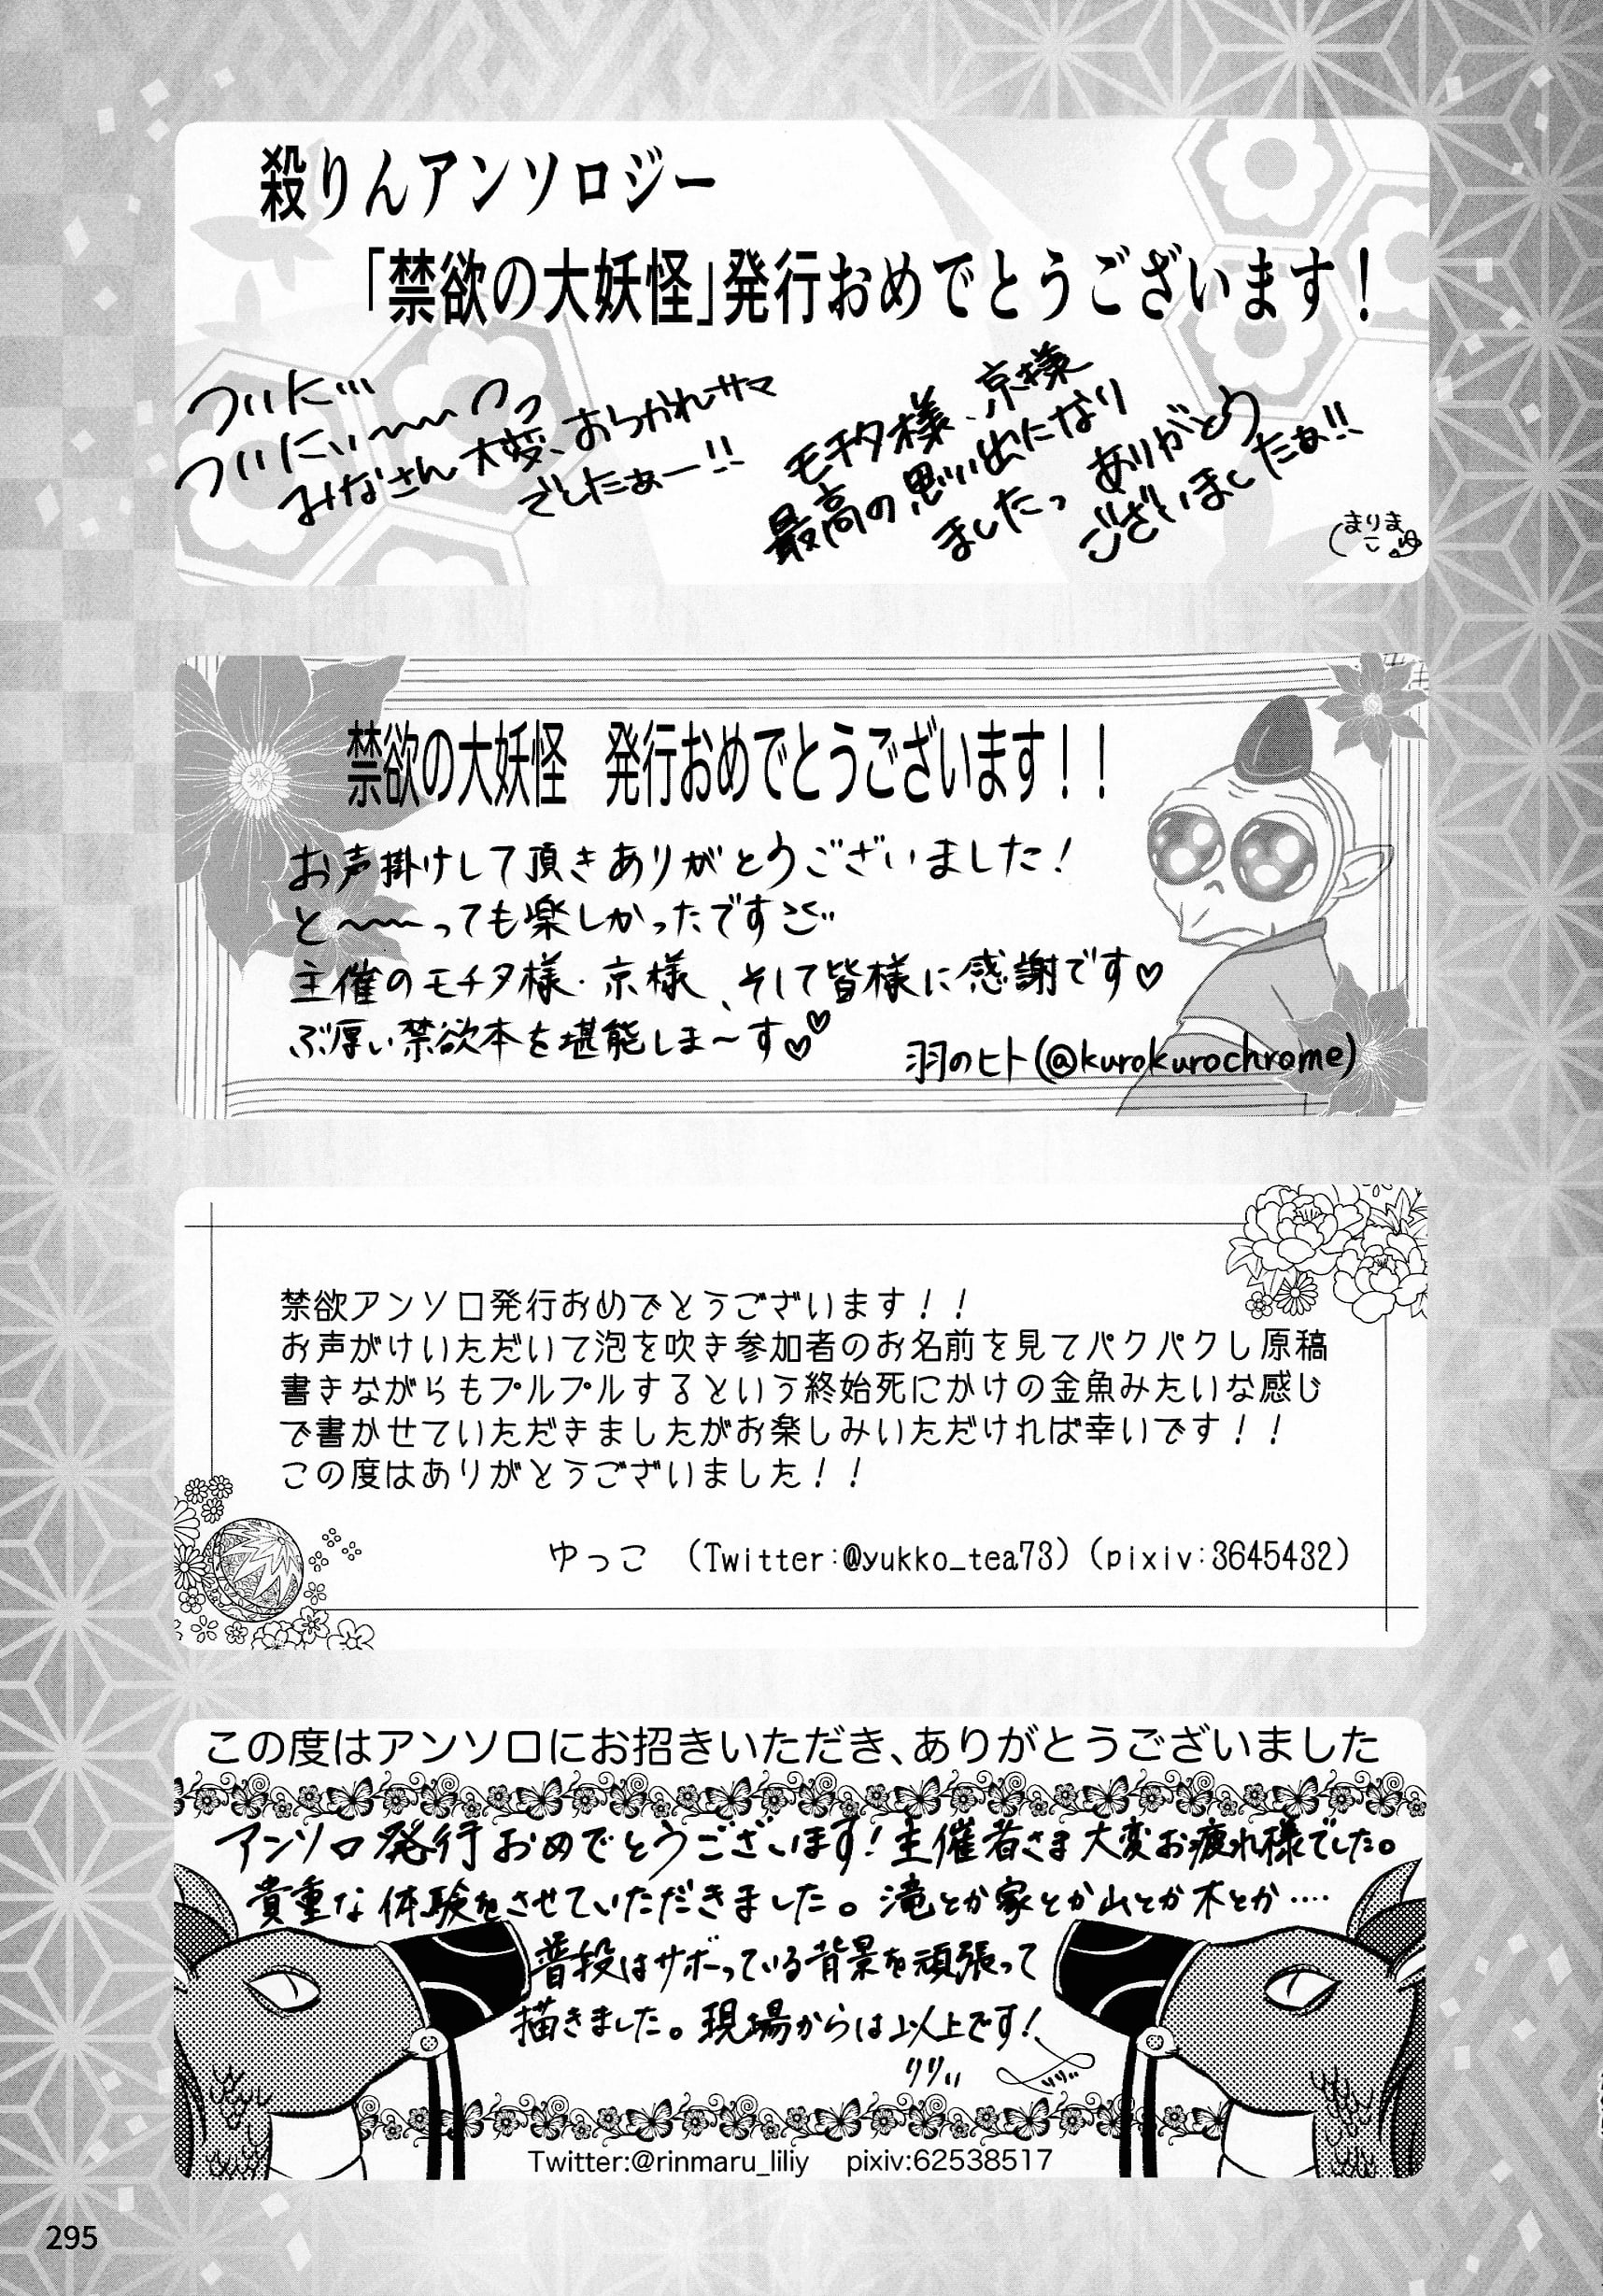 殺りんアンソロジー
「禁欲の大妖怪」発行おめでとうございます！
ついに…
ついにぃ〜〜っっ
みなさん大変、おつかれサマ
でしたぁー!!
モチタ様、京様
最高の思い出になり
ましたっ ありがとう
ございましたぁ!!
まりま
禁欲の大妖怪　発行おめでとうございます！！
お声掛けして頂きありがとうございました！
と〜〜っても楽しかったです
主催のモチタ様・京様、そして皆様に感謝です♡
ぶ厚い禁欲本を堪能しま〜す♡♡
羽のヒト(@kurokurochrome)
禁欲アンソロ発行おめでとうございます！！
お声がけいただいて泡を吹き参加者のお名前を見てパクパクし原稿
書きながらもプルプルするという終始死にかけの金魚みたいな感じ
で書かせていただきましたがお楽しみいただければ幸いです！！
この度はありがとうございました！！
ゆっこ　(Twitter:@yukko_tea73)(pixiv:3645432)
この度はアンソロにお招きいただき、ありがとうございました
アンソロ発行おめでとうございます！主催者さま大変お疲れ様でした。
貴重な体験をさせていただきました。滝とか家とか山とか木とか‥‥
普段はサボっている背景を頑張って
描きました。現場からは以上です！
リリぃ
Twitter:@rinmaru_liliy　pixiv:62538517
295